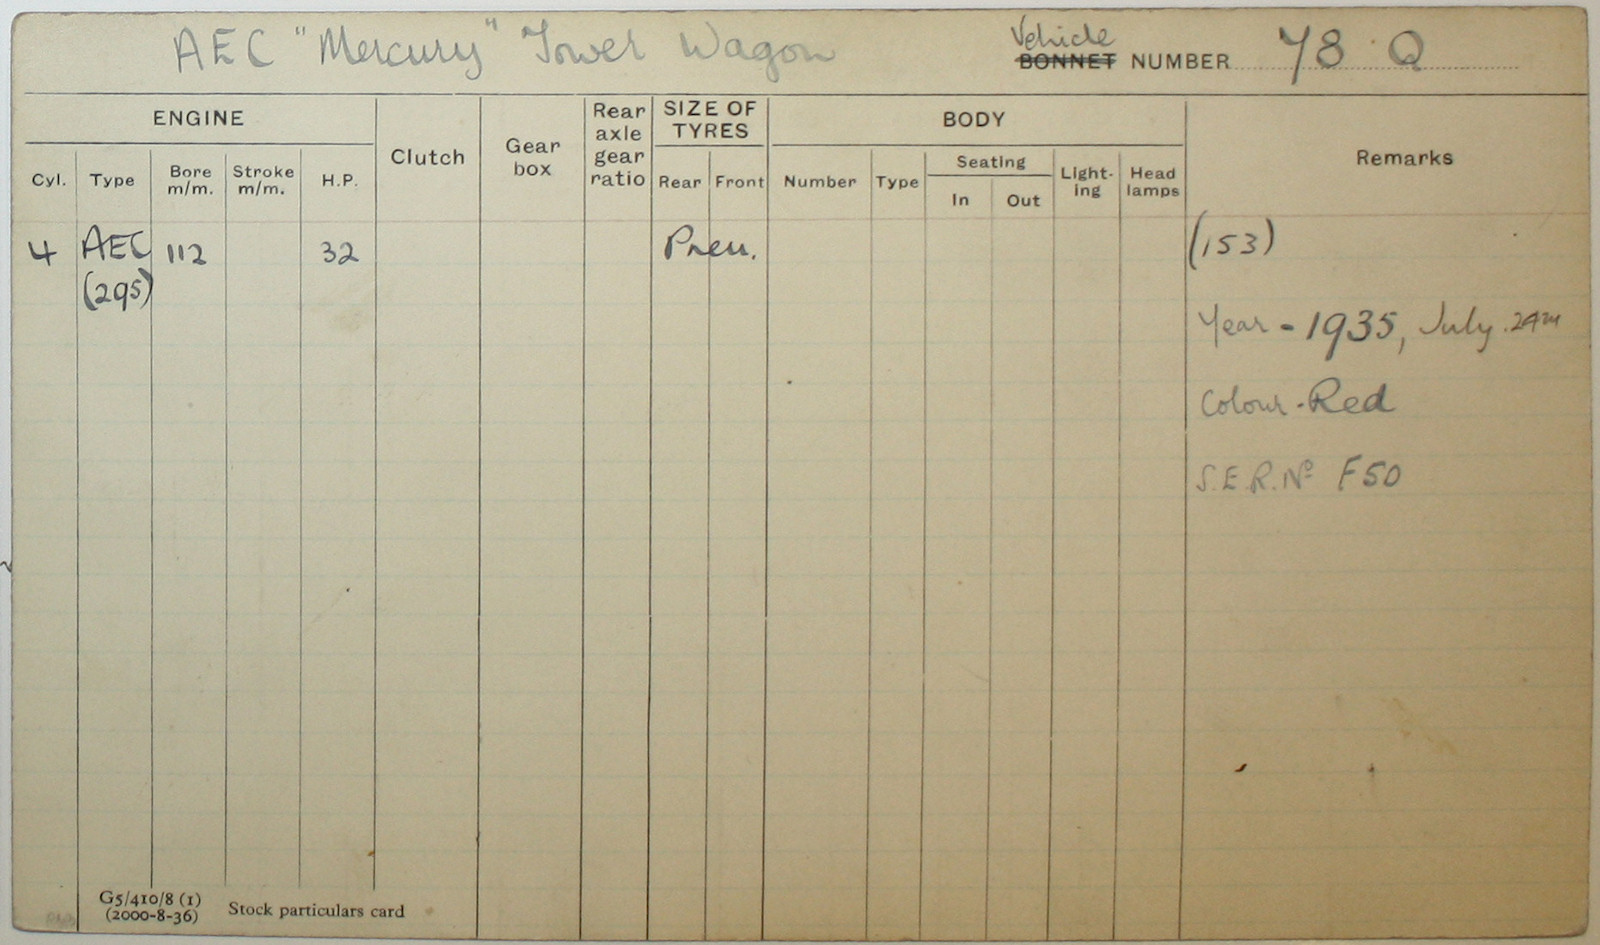 AEC "Mercury" Tower Wagon
Vehicle
BONNET NUMBER 78 Q
ENGINE
Clutch
Gear box
Rear axle gear ratio
SIZE OF TYRES
BODY
Remarks
Cyl.
Type
Bore m/m.
Stroke m/m.
H.P.
Rear
Front
Number
Type
Seating
In
Out
Light-ing
Head lamps
4 AEC 112 32 Pneu. (153)
(295)
Year - 1935, July 24th
Colour - Red
S.E.R. No F50
G5/410/8 (1)
(2000-8-36)
Stock particulars card